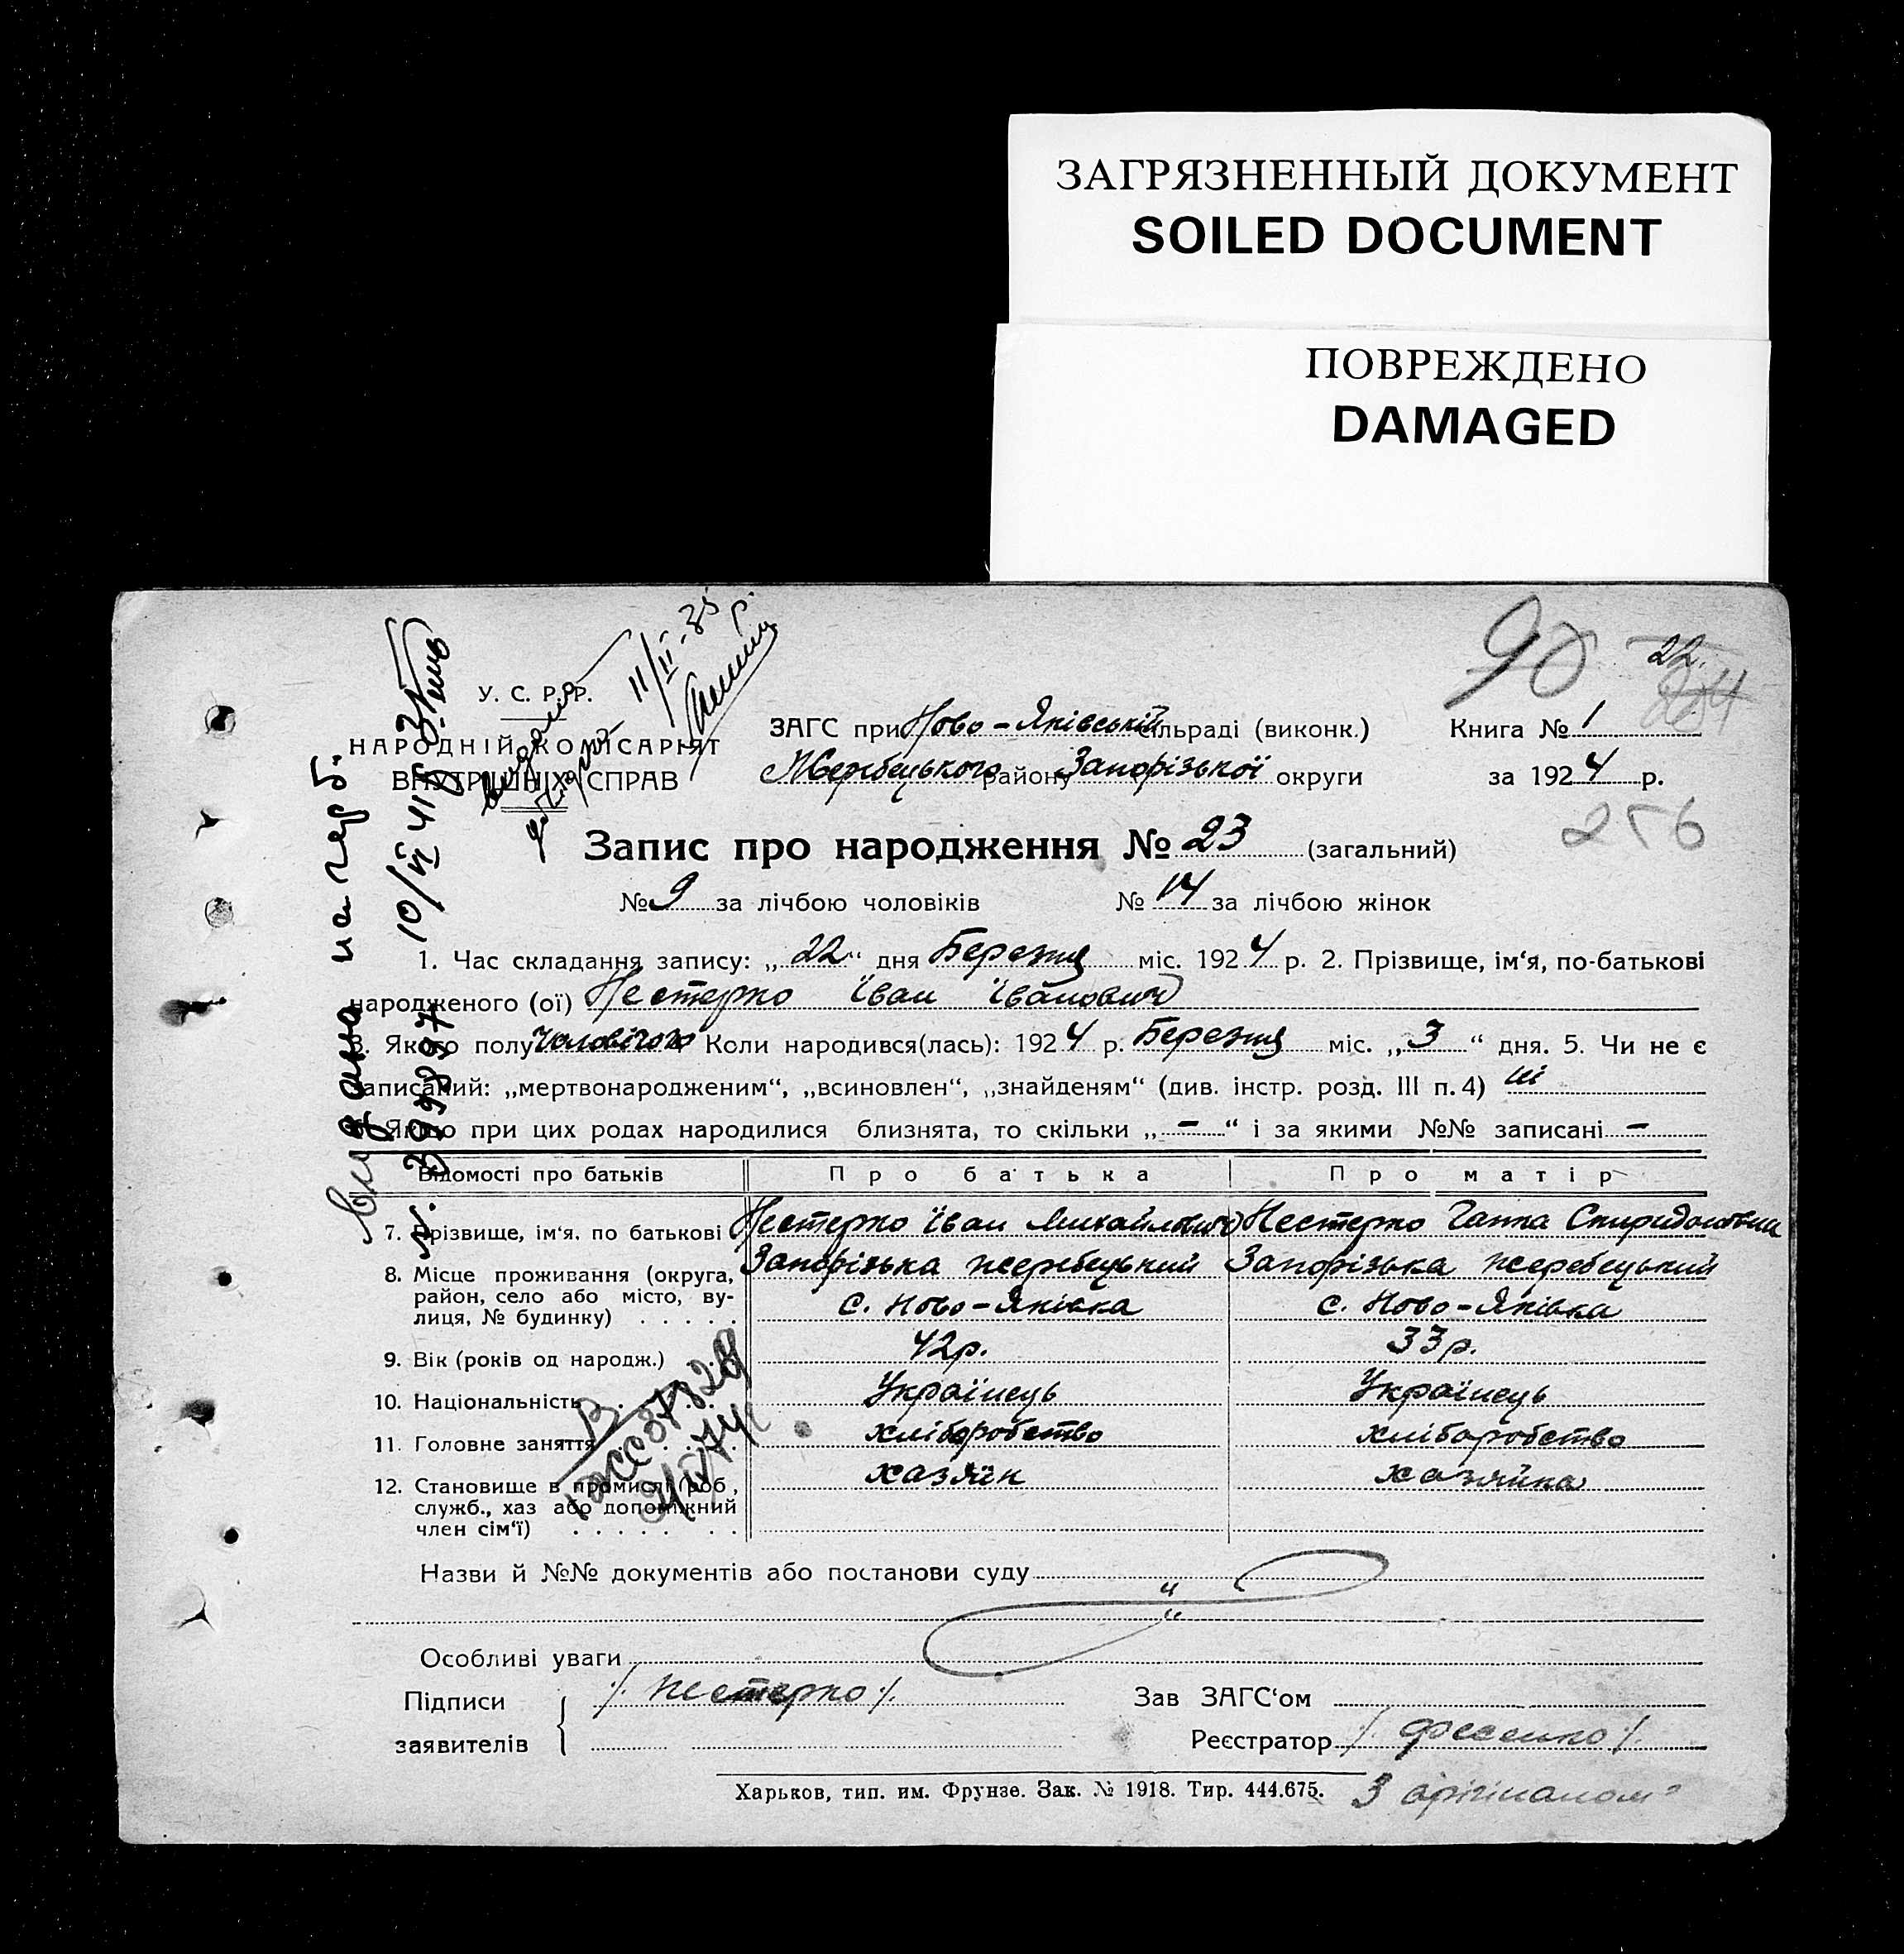 ЗАГРЯЗНЕННЫЙ ДОКУМЕНТ
SOILED DOCUMENT
ПОВРЕЖДЕНО
DAMAGED
90
22
254
У. С. Р. Р.
НАРОДНІЙ КОМІСАРІЯТ
ВНУТРІШНІХ СПРАВ
11/II-35 р.
ЗАГС при Ново-Яківській сільраді (виконк.) Книга № 1
Жеребецького району Запорізької округи за 1924 р.
256
Запис про народження № 23 (загальний)
№ 9 за лічбою чоловіків № 14 за лічбою жінок
1. Час складання запису: „22“ дня Березня міс. 1924 р. 2. Прізвище, ім‘я, по-батькові
народженого (ої) Нестерко Їван Їванович
3. Якого полу Чоловічого Коли народився(лась): 1924 р. Березня міс. „3“ дня. 5. Чи не є
записаний: „мертвонародженим“, „всиновлен“, „знайденям“ (див. інстр. розд. III п. 4) ні
6. Якщо при цих родах народилися близнята, то скільки „–“ і за якими №№ записані –
Відомості про батьків Про батька Про матір
7. Прізвище, ім‘я, по батькові Нестерко Їван Михайлович Нестерко Ганна Спиридоновна
8. Місце проживання (округа, район, село або місто, вулиця, № будинку) . . . . . Запорізька жеребецький Запорізька жеребецький
с. Ново-Яківка с. Ново-Яківка
9. Вік (років од народж.) 42р. 33р.
10. Національність Українець Українець
11. Головне заняття хліборобство хліборобство
12. Становище в промислі (роб., служб., хаз або допоміжний член сім‘ї) . . . . . хазяїн хазяйка
Назви й №№ документів або постанови суду
Особливі уваги
Підписи /. Нестерко ./ Зав ЗАГС‘ом
заявителів Реєстратор /. Фесенко ./
Харьков, тип. им. Фрунзе. Зак. № 1918. Тир. 444.675.
З оріґіналом
Видано на герб.
10/VI 41